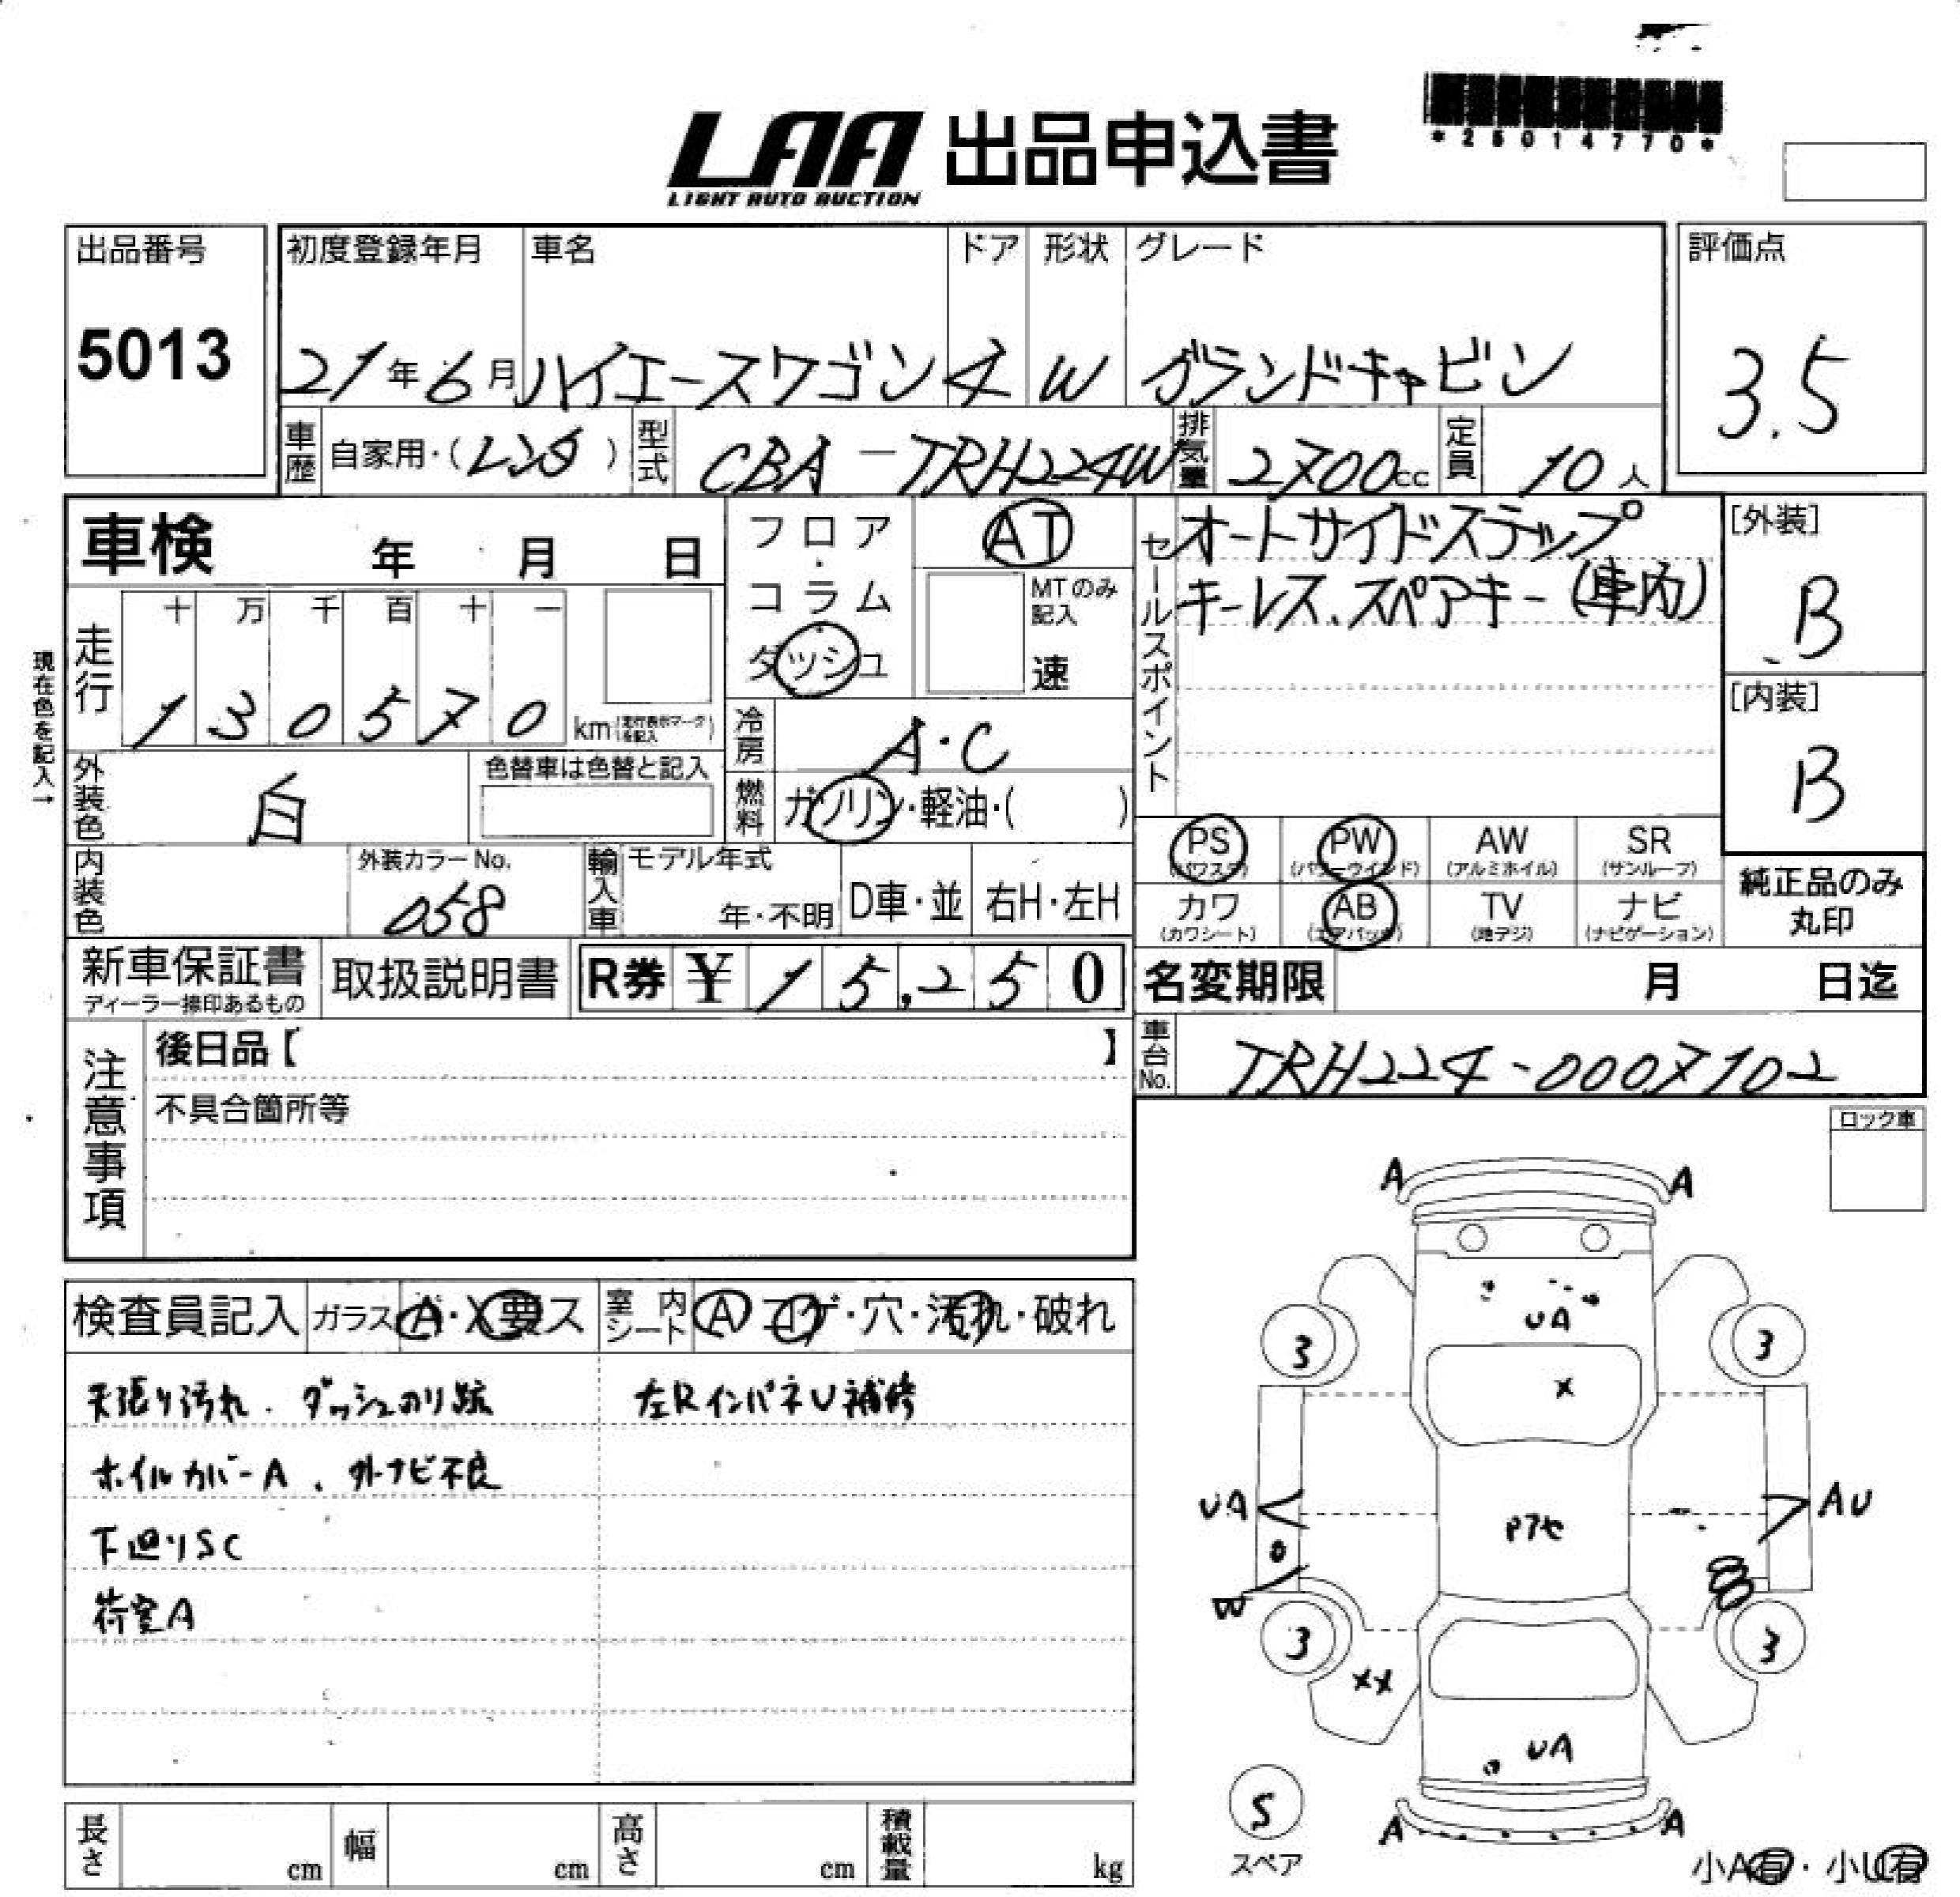 LAA 出品申込書
LIGHT AUTO AUCTION
出品番号 初度登録年月 車名 ドア 形状 グレード 評価点
5013 21年6月 ハイエースワゴン 4 W グランドキャビン 3.5
車歴 自家用・(レンタ) 型式 CBA-TRH224W 排気量 2700cc 定員 10人
車検 年 月 日
フロア・コラム・ダッシュ
AT
MTのみ記入
速
セールスポイント
オートサイドステップ
キーレス、スペアキー(車内)
[外装]
B
[内装]
B
現在色を記入→
走行 十 万 千 百 十 一
130570 km (走行表示マークを記入)
冷房 A・C
外装色 白 色替車は色替と記入
燃料 ガソリン・軽油・( )
内装色 外装カラーNo. 058
輸入車 モデル年式 年・不明 D車・並 右H・左H
PS (パワステ) PW (パワーウインド) AW (アルミホイル) SR (サンルーフ)
カワ (カワシート) AB (エアバック) TV (地デジ) ナビ (ナビゲーション)
純正品のみ
丸印
新車保証書 ディーラー捺印あるもの 取扱説明書 R券 ¥15,250
名変期限 月 日迄
車台No. TRH224-0007102
注意事項
後日品【 】
不具合箇所等
ロック車
検査員記入 ガラス A・X要ス 室内シート A コゲ・穴・汚れ・破れ
天張り汚れ. ダッシュのり跡 左RインパネU補修
ホイルカバーA . 外ナビ不良
下廻りSC
荷室A
A A
UA
3 3
X
UA AU
Pアセ
W
3 3
XX
UA
S
スペア
A A
小A有・小U有
長さ cm 幅 cm 高さ cm 積載量 kg